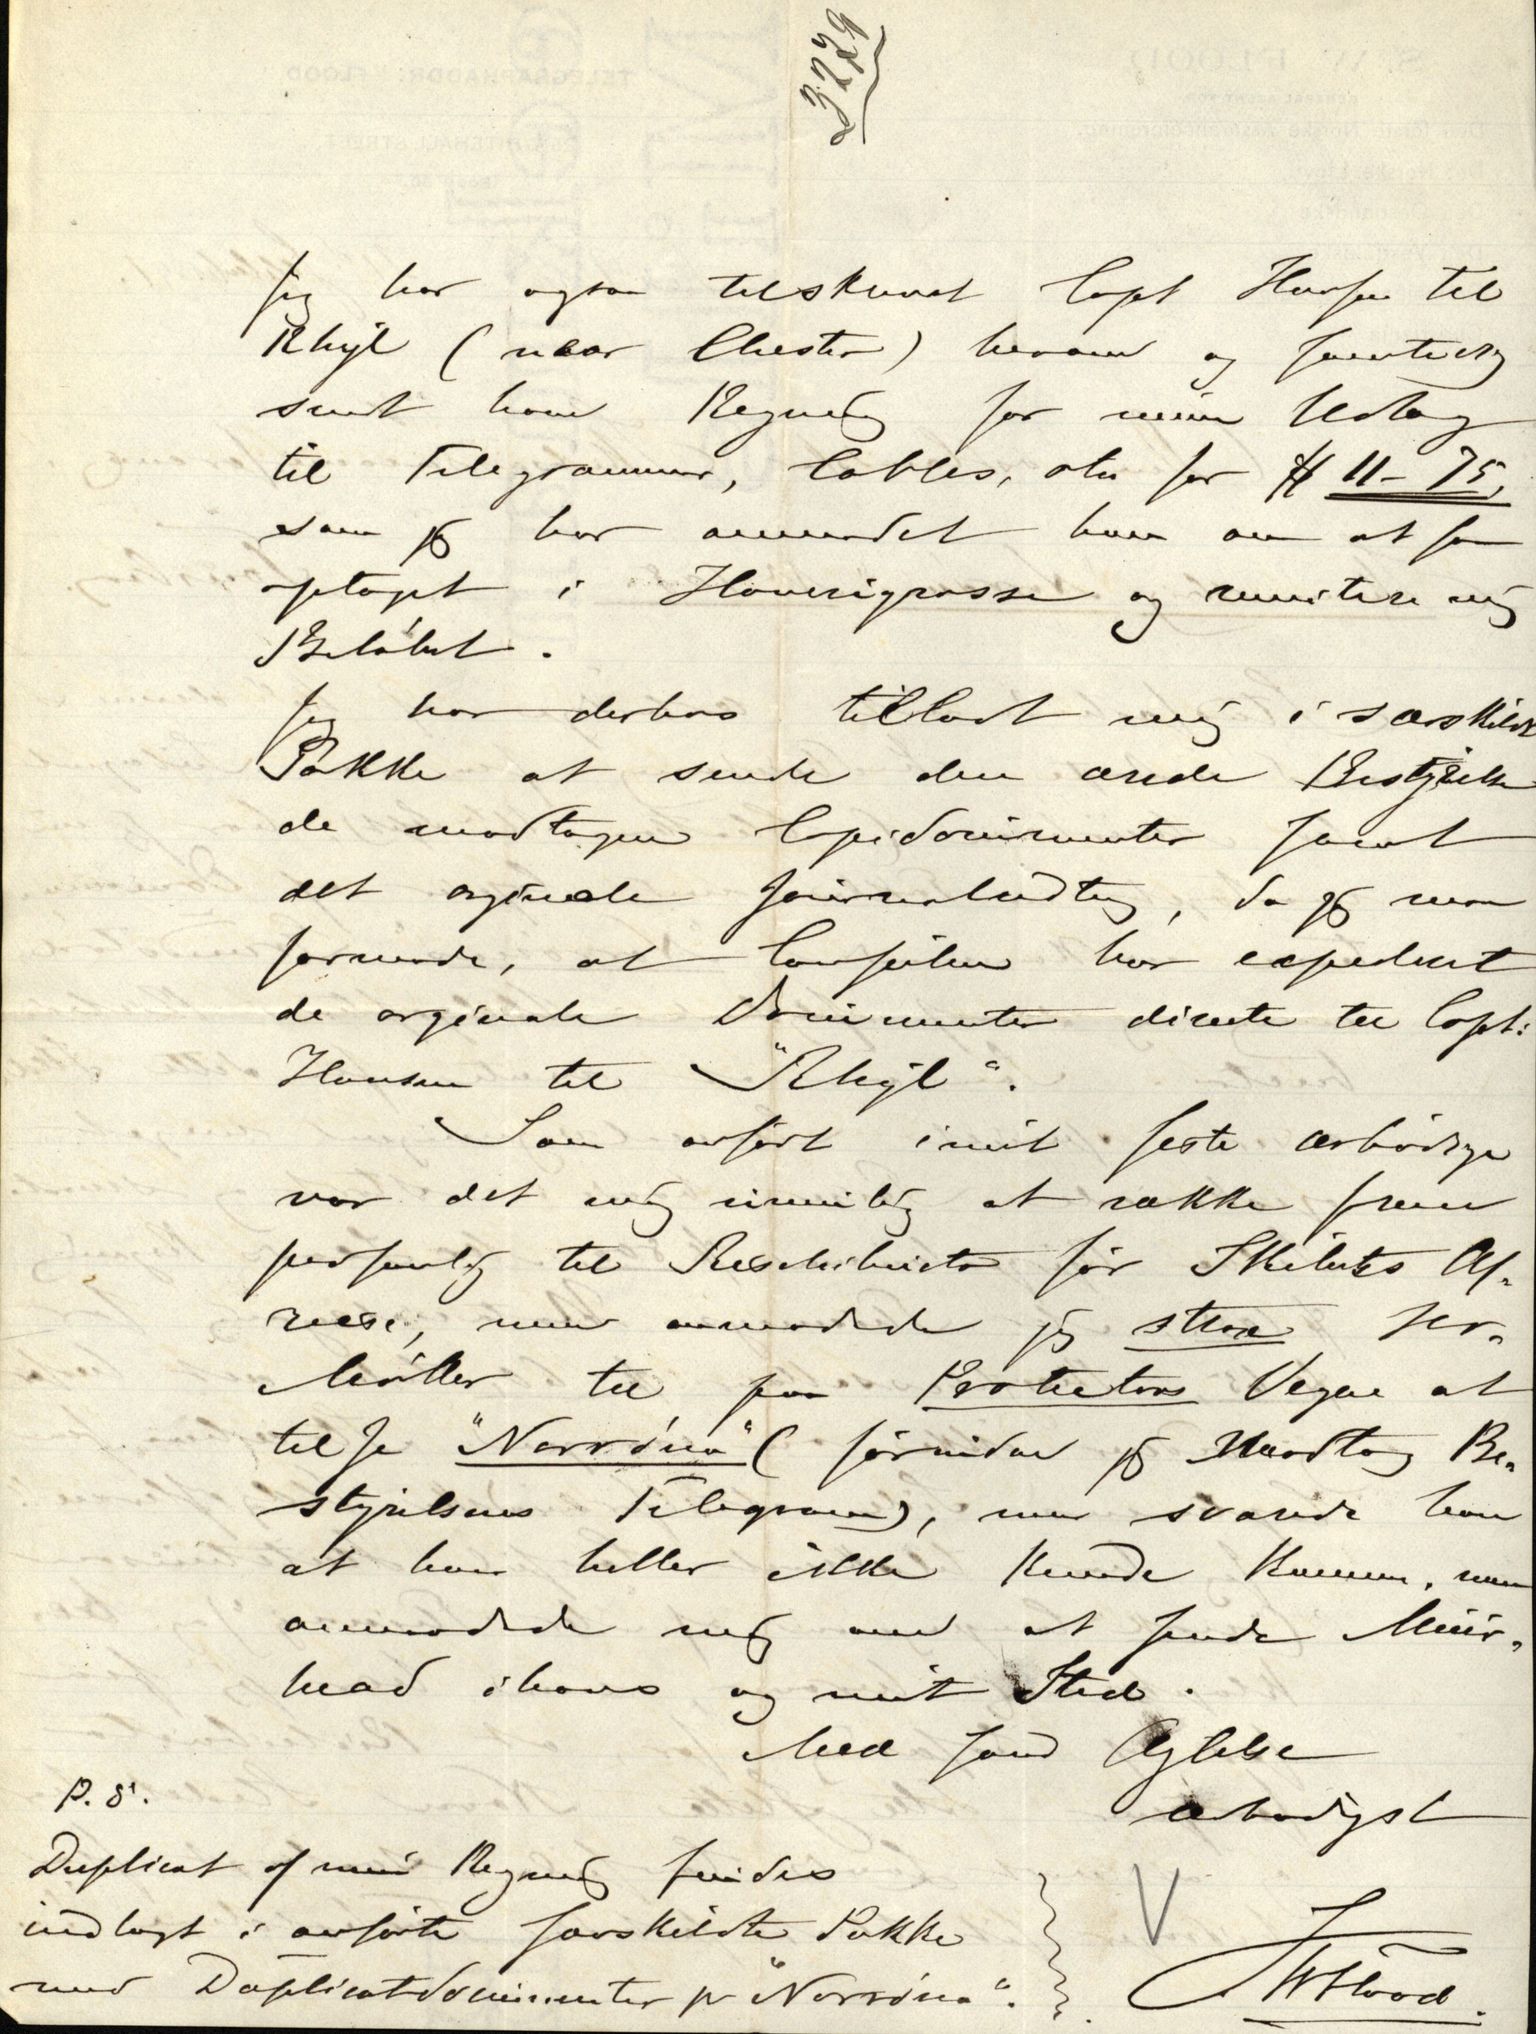 3229
Jeg har ogsaa tilskrevet Capt Hansen til
Rhyl (nær Chester) herom og samtidig
sendt ham Regning for mine Udlæg
til Telegrammer, Cables, etc for $ 11-75,
som jeg har anmodet ham om at faa
optaget i Haverigrosse og remitere mig
Beløbet.
Jeg har derhos tilladt mig i særskildt
Pakke at sende den ærede Bestyrelse
de modtagne Copidocumenter samt
det orginale Journaludtog, da jeg maa
formode, at Consulen har expederet
de orginale Documenter directe til Capt:
Hansen til "Rhyl".
Som anført i mit sidste ærbødige
var det mig umulig at række frem
personlig til Restribucto før Skibets Af-
reise, men anmodede jeg strax Hr.
Møller til paa Protectors Vegne at
tilse "Norrøna" (førinden jeg modtog Be-
styrelsens Telegram), men svarede han
at han heller ikke kunde komme, men
anmodede mig om at sende Muir-
head i hans og mit Sted.
Med sand Agtelse
ærbødigst
SWFlood.
P.S.
Duplicat af min Regning findes
indlagt i anførte særskildte Pakke
med Duplicatdocumenter pr "Norrøna".
V